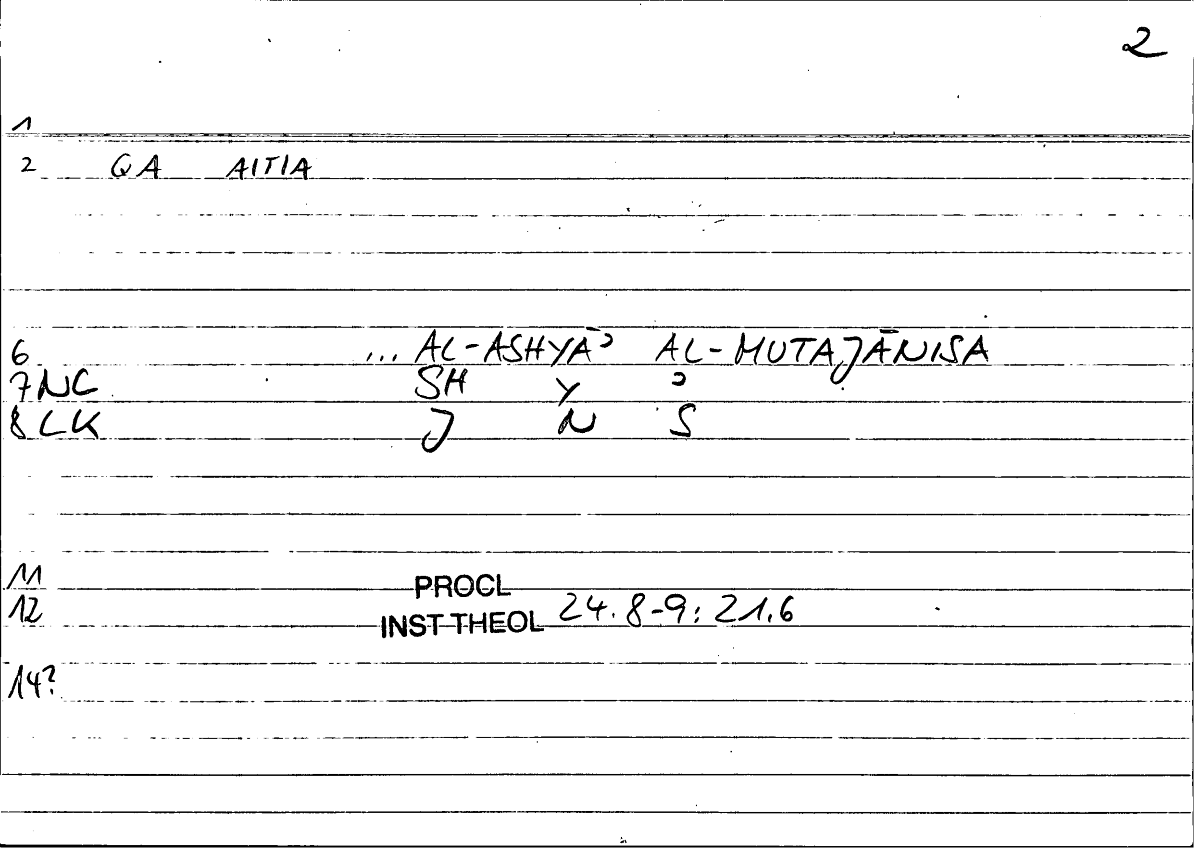 2
1
2 QA AITIA
6 ... AL-ASHYĀʾ AL-MUTAJĀNISA
7 NC SH Y ʾ
8 LK J N S
11 PROCL
12 INST THEOL 24.8-9: 21.6
14?